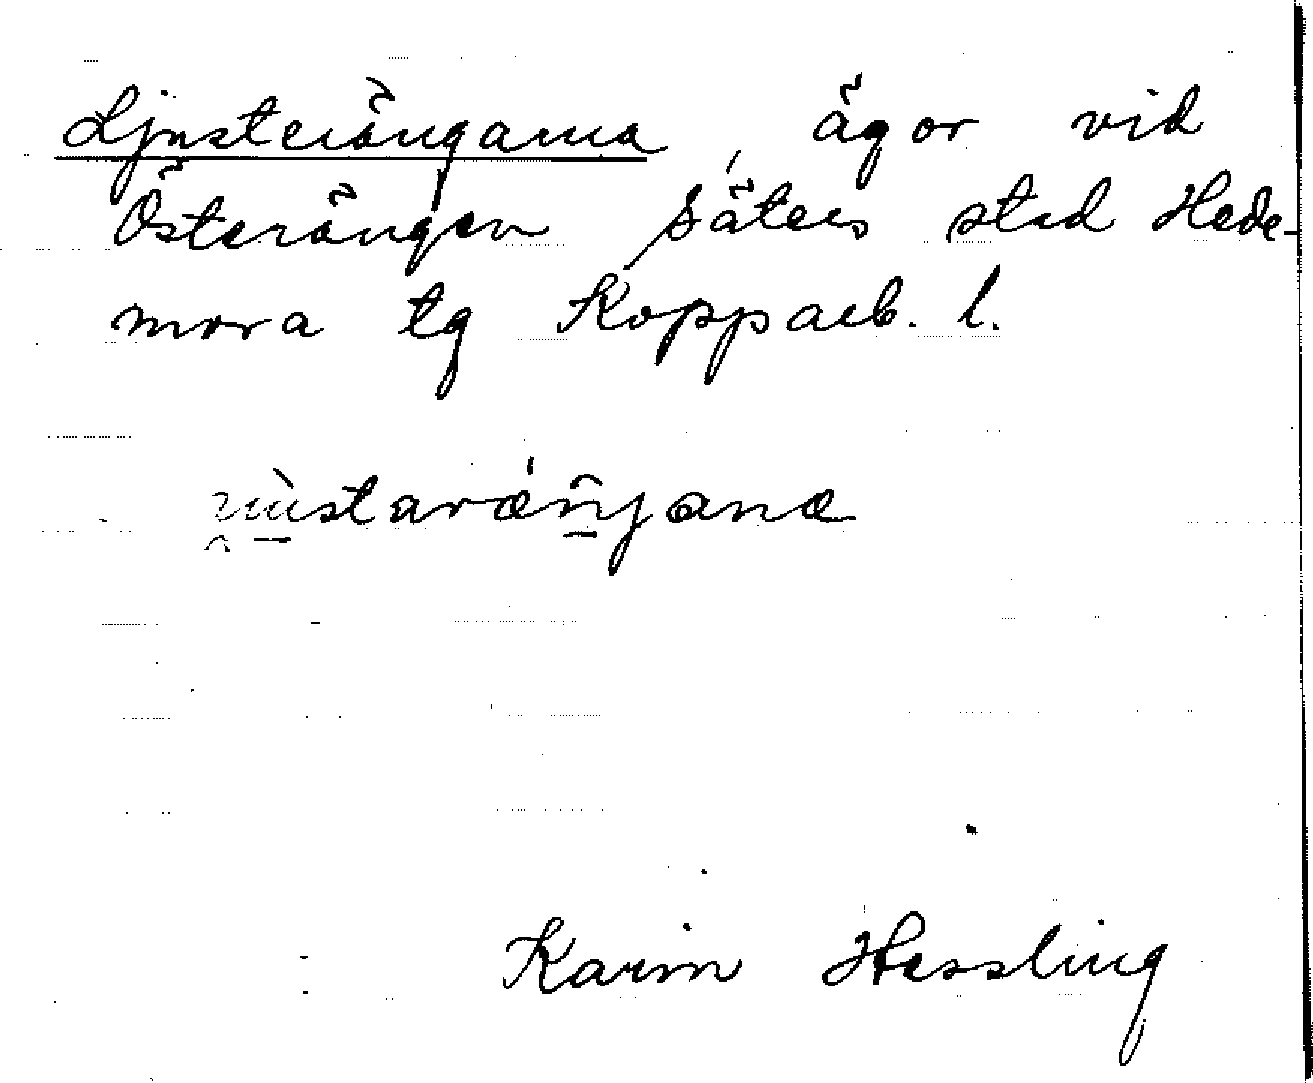 Ljusterängarna, ägor vid
Österängen Säters stad Hede-
mora tg Kopparb. l.
Karin Hessling